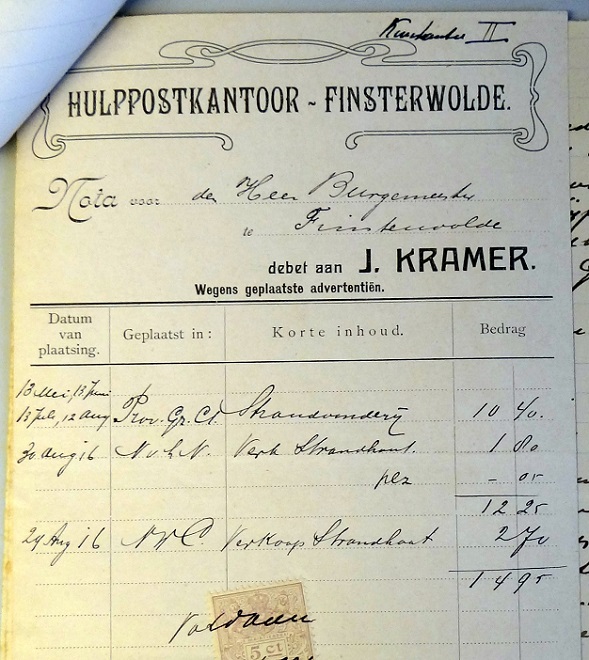 HULPPOSTKANTOOR ~ FINSTERWOLDE.
Nota voor den Heer Burgemeester
te Finsterwolde
debet aan J. KRAMER.
Wegens geplaatste advertentiën.
Datum van plaatsing. Geplaatst in: Korte inhoud. Bedrag
13 Mei, 13 Juni
13 Juli, 12 Aug Prov. Gr. Ct. Strandvonderij 10 40.
30 Aug 16 N v h N. Verk Strandhout. 1 80
- 05
12 25
29 Aug 16 Verkoop Strandhout 2 70
14 95
Voldaan
5 ct